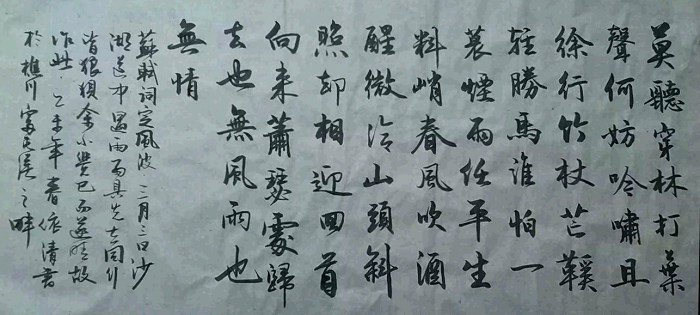 莫聽穿林打葉
聲何妨吟嘯且
徐行竹杖芒鞵
輕勝馬誰怕一
蓑煙雨任平生
料峭春風吹酒
醒微冷山頭斜
照却相迎回首
向来蕭瑟處歸
去也無風雨也
無情
蘇軾詞定風波 三月三日沙
湖道中遇雨雨具先去同行
皆狼狽余不覺已而遂晴故
作此 乙未年春依清書
於樵川富屯溪之畔